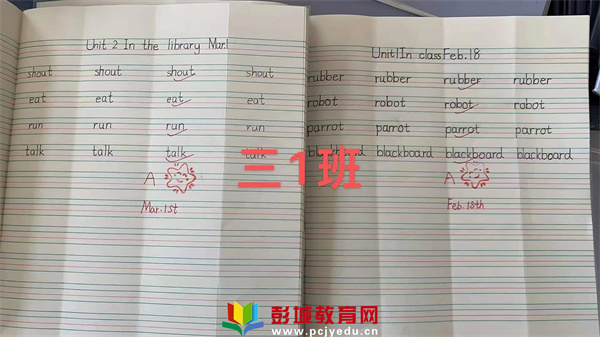 Unit 2 In the library Mar.1
shout shout shout shout
eat eat eat eat
run run run run
talk talk talk talk
A
Mar.1st
Unit1In class Feb.18
rubber rubber rubber rubber
robot robot robot robot
parrot parrot parrot parrot
blackboard blackboard blackboard blackboard
A
Feb.18th
三1班
彭城教育网
www.pcjyedu.cn